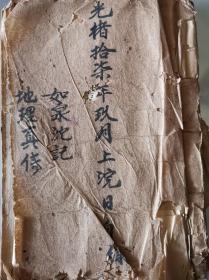 光绪拾柒年玖月上浣日
如泉沈記
地理真傳